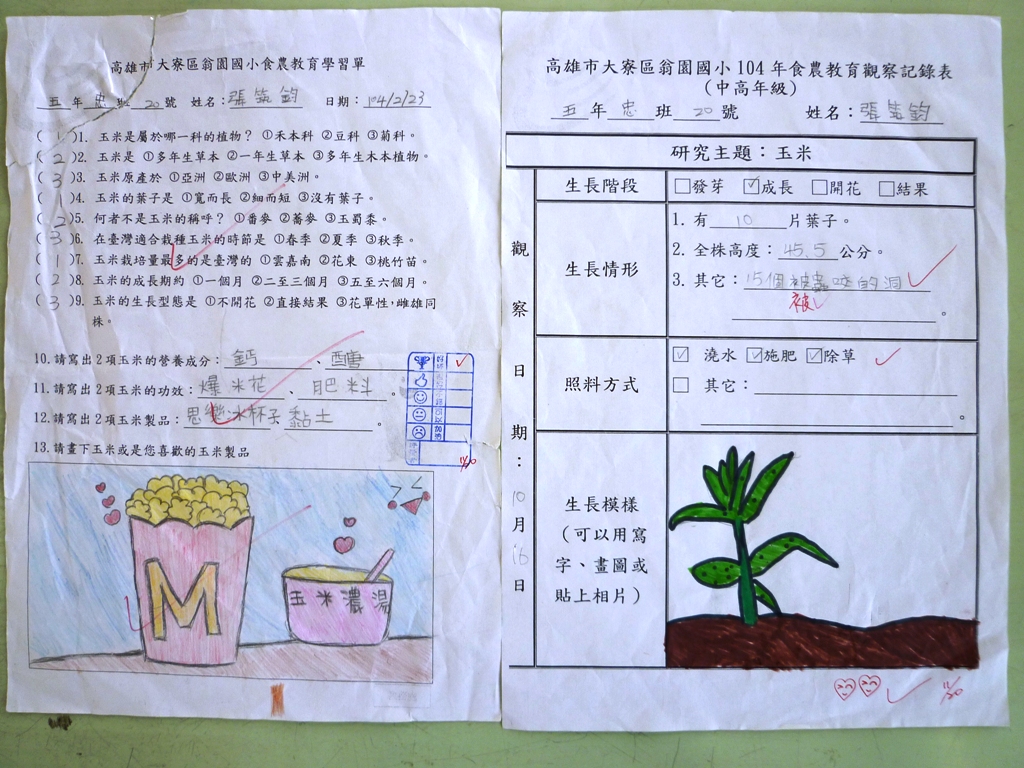 高雄市大寮區翁園國小食農教育學習單
五年忠班20號 姓名:張筑鈞 日期:104/2/23
(1)1. 玉米是屬於哪一科的植物? ①禾本科 ②豆科 ③菊科。
(2)2. 玉米是 ①多年生草本 ②一年生草本 ③多年生木本植物。
(3)3. 玉米原產於 ①亞洲 ②歐洲 ③中美洲。
(1)4. 玉米的葉子是 ①寬而長 ②細而短 ③沒有葉子。
(2)5. 何者不是玉米的稱呼? ①番麥 ②蕎麥 ③玉蜀黍。
(3)6. 在臺灣適合栽種玉米的時節是 ①春季 ②夏季 ③秋季。
(1)7. 玉米栽培量最多的是臺灣的 ①雲嘉南 ②花東 ③桃竹苗。
(2)8. 玉米的成長期約 ①一個月 ②二至三個月 ③五至六個月。
(3)9. 玉米的生長型態是 ①不開花 ②直接結果 ③花單性,雌雄同
株。
10.請寫出2項玉米的營養成分:鈣、醣
11.請寫出2項玉米的功效:爆米花、肥料。
12.請寫出2項玉米製品:思樂冰杯子 黏土。
13.請畫下玉米或是您喜歡的玉米製品
M
玉米濃湯
高雄市大寮區翁園國小104年食農教育觀察記錄表
(中高年級)
五年忠班20號 姓名:張筑鈞
研究主題:玉米
觀察日期:10月16日
生長階段 □發芽 ☑成長 □開花 □結果
生長情形
1. 有10片葉子。
2. 全株高度:45.5公分。
3. 其它:15個被蟲咬的洞
被
。
照料方式
☑ 澆水 ☑施肥 ☑除草
□ 其它:
。
生長模樣
(可以用寫
字、畫圖或
貼上相片)
11/20